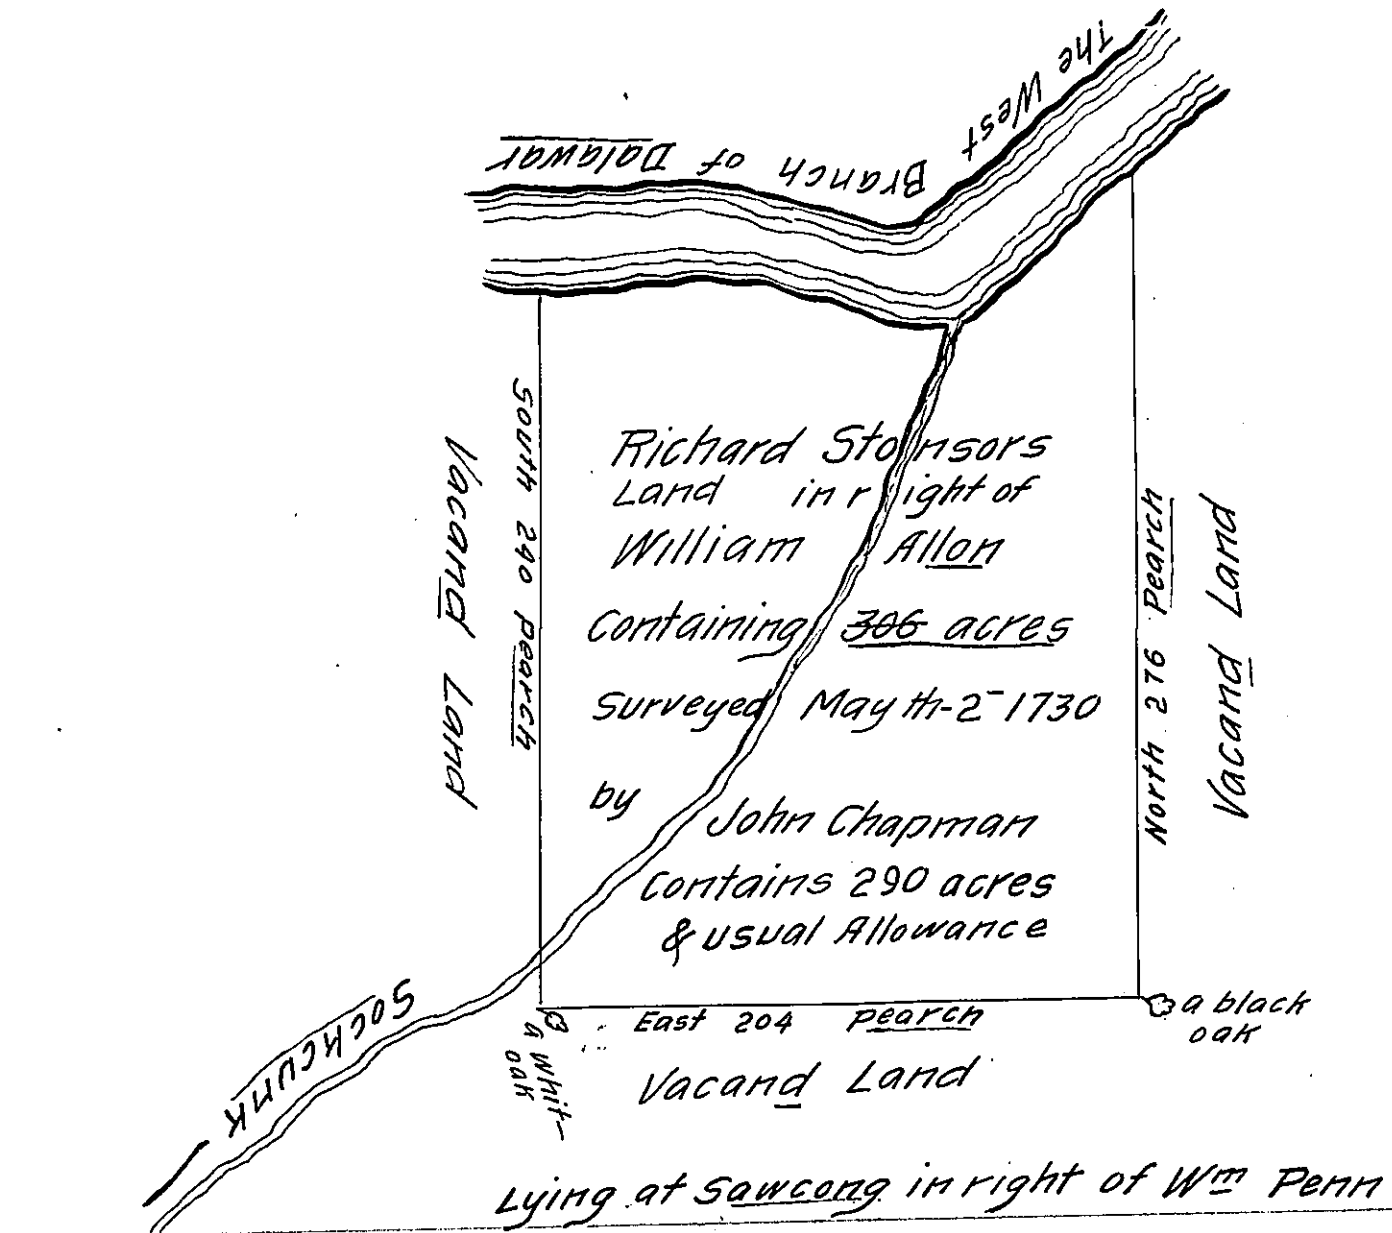 The West
Branch of Dalawar
South 240 pearch
Vacand Land
Richard Stonsors
Land in right of
William Allon
Containing 306 acres
Surveyed May th-2- 1730
by John Chapman
Contains 290 acres
& usual Allowance
North 276 Pearch
Vacand Land
a black
oak
East 204 pearch
a whit-
oak
Vacand Land
Sockcunk
Lying at Sawcong in right of Wm Penn